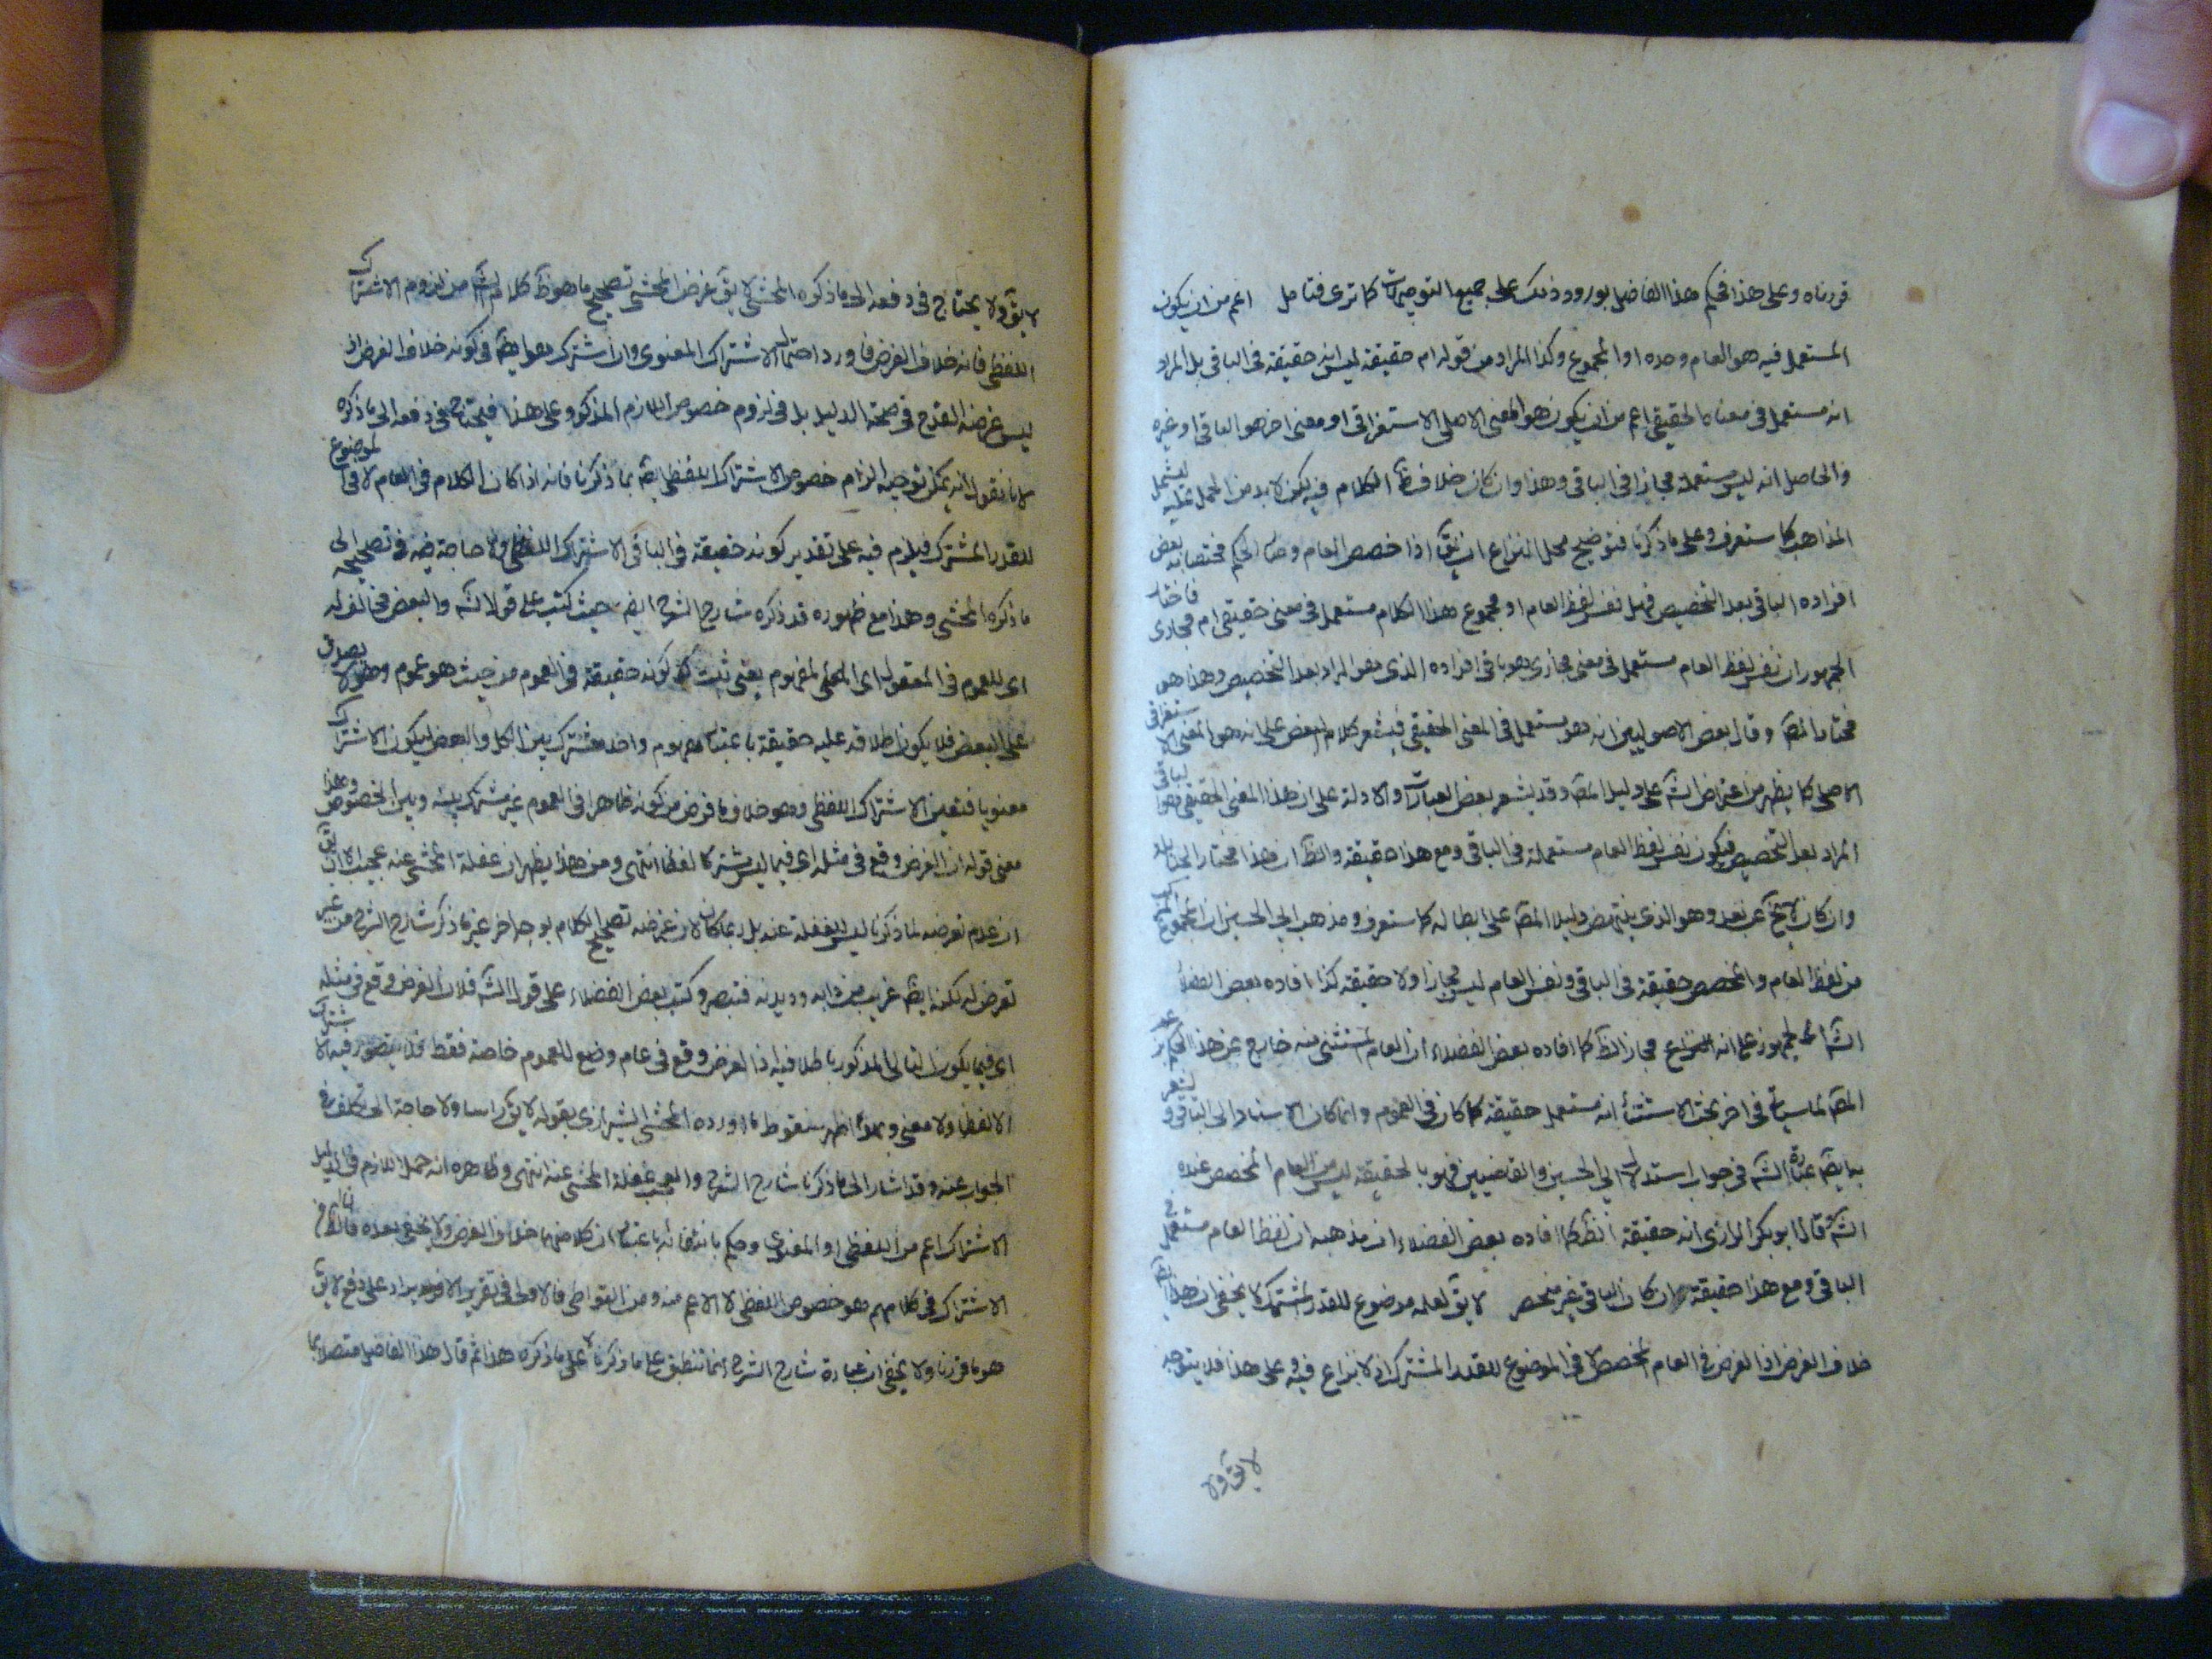 قررناه وعلى هذا فحكم هذا الفاضل بورود ذلك على جميع التوجيهات كما ترى فتامل اعم من ان يكون
المستعمل فيه هو العام وحده او المجموع وكذا المراد من قوله ام حقيقة ليس انه حقيقة فى الباقى بل المراد
انه مستعمل فى معناه الحقيقى اعم من ان يكون هو المعنى الاصلى الاستغراقى او معنى اخر هو الباقى او غيره
والحاصل انه ليس مستعملة مجازا فى الباقى وهذا وان كان خلاف ظ الكلام فيه لكن لا بد من الحمل عليه ليشمل
المذاهب كما ستعرف وعلى ما ذكرنا فتوضيح محل النزاع ان يقآ اذا خصص العام وصار الحكم مختصا به بعض
افراده الباقى بعد التخصيص فهل نفس لفظ العام او مجموع هذا الكلام مستعمل فى معنى حقيقى ام مجازى فاختار
الجمهور ان نفس لفظ العام مستعمل فى معنى مجازى هو باقى افراده الذى هو المراد بعد التخصيص وهذا هو
مختار المصآ وقال بعض الاصوليين انه هو مستعمل فى المعنى الحقيقى فيشعر كلام البعض على انه هو المعنى الاستغراقى
الاصلى كما يظهر من اعتراض الشآ على دليل المصآ وقد يشعر بعض العبارات والادلة على ان هذا المعنى الحقيقى هو الباقى
المراد بعد التخصيص فيكون نفس لفظ العام مستعملة فى الباقى ومع هذا حقيقة والظآ ان هذا مختار الحنابلة
وان كان لا يخ عن بعد وهو الذى ينتهض دليل المصآ على ابطاله كما ستعرف ومذهب ابى الحسين ان المجموع
من لفظ العام والمخصص حقيقة فى الباقى ونفس العام ليس مجازا ولا حقيقة كذا افاده بعض الفضلاء
الشآ الجمهور على انه مجاز الظآ كما افاده بعض الفضلاء ان العام المستثنى منه خارج عن هذا الحكم عند
المصآ لما سياتى فى اخر بحث الاستثناء انه مستعمل حقيقة كما كان فى العموم وانما كان الاسناد الى الباقى و يشعر
به ايضآ عبارة الشآ فى جواب استدلال ابى الحسين والقاضيين فهو بالحقيقة ليس من العام المخصص عنده
الشآ قال ابو بكر الرازى انه حقيقة الظآ كما افاده بعض الفضلاء ان مذهبه ان لفظ العام مستعمل فى
الباقى ومع هذا حقيقة ان كان الباقى غير منحصر لا يقآ لعله موضوع للقدر المشترك لا يخفى ان هذا
خلاف الفرض اذا الفرض فى العام المخصص لا فى الموضوع للقدر المشترك اذ لا نزاع فيه وعلى هذا فلا يتوجه
لا يقآ ولا
لا يقآ ولا يحتاج فى دفعه الى ما ذكره المحشى لا يقآ غرض المحشى تصحيح ما هو ظآ كلام الشآ من لزوم الاشتراك
اللفظى فانه خلاف الفرض فاورد احتمال الاشتراك المعنوى وان اشترك هو ايضآ فى كونه خلاف الفرض اذ
ليس غرضه القدح فى صحة الدليل بل فى لزوم خصوص اللازم المذكور وعلى هذا فيحتاج فى دفعه الى ما ذكره
لانا نقول انه يمكن توجيه الزام خصوص الاشتراك اللفظى ايضآ بما ذكرنا فانه اذا كان الكلام فى العام لا فى الموضوع
للقدر المشترك فيلزم فيه على تقدير كونه حقيقة فى الباقى الاشتراك اللفظى ولا حاجة فيه فى تصحيحه الى
ما ذكره المحشى وهذا مع ظهوره قد ذكره شارح الشرح ايضآ حيث كتب على قول الشآ والبعض مخالف له
اى للعموم فى المعقول اى المعنى المفهوم يعنى ثبت كونه حقيقة فى العموم من حيث هو عموم وهو لا يصدق
على البعض فلا يكون اطلاقه عليه حقيقة باعتبار مفهوم واحد مشترك بين الكل والبعض ليكون الاشتراك
معنويا فتعين الاشتراك اللفظى وهو خلاف ما فرض من كونه ظاهرا فى العموم غير مشترك بينه وبين الخصوص وهذا
معنى قوله ان الفرض وقع فى مثله اى فيما ليس مشتركا لفظا انتهى ومن هذا يظهر ان غفلة المحشى عنه عجيب الا ان يقآ
ان عدم تعرضه لما ذكرنا ليس للغفلة عنه بل ربما كان لان غرضه تصحيح الكلام بوجه اخر غير ما ذكر شارح الشرح من غير
تعرض له لكنه ايضآ غريب من دابه وديدنه فتبصر وكتب بعض الفضلاء على قول الشآ فلان الفرض وقع فى مثله
اى فيما يكون التالى المذكور باطلا فيه اذ الفرض وقع فى عام وضع للعموم خاصة فقط فلا يتصور فيه الاشتراك
لا لفظا ولا معنى وبهذا ظهر سقوط ما اورده المحشى الشيرازى بقوله لا يقآ راسا ولا حاجة الى تكلف فى
الجواب عنه وقد اشار الى ما ذكرنا شارح الشرح والعجب غفلة المحشى عنه انتهى وظاهره انه حمل اللازم فى الدليل
الاشتراك اعم من اللفظى او المعنوى وحكم بانتفائه باعتبار ان كلا منهما خلاف الفرض ولا يخفى بعده فالظآ ان المراد
الاشتراك فى كلامهم هو خصوص اللفظى لا الاعم منه ومن التواطى فالاولى فى تقرير الايراد على دفع لا يقآ
هو ما قررنا ولا يخفى ان عبارة شارح الشرح انما تنطبق على ما ذكرنا لا على ما ذكره هذا ثم قال هذا الفاضل متصلا بما